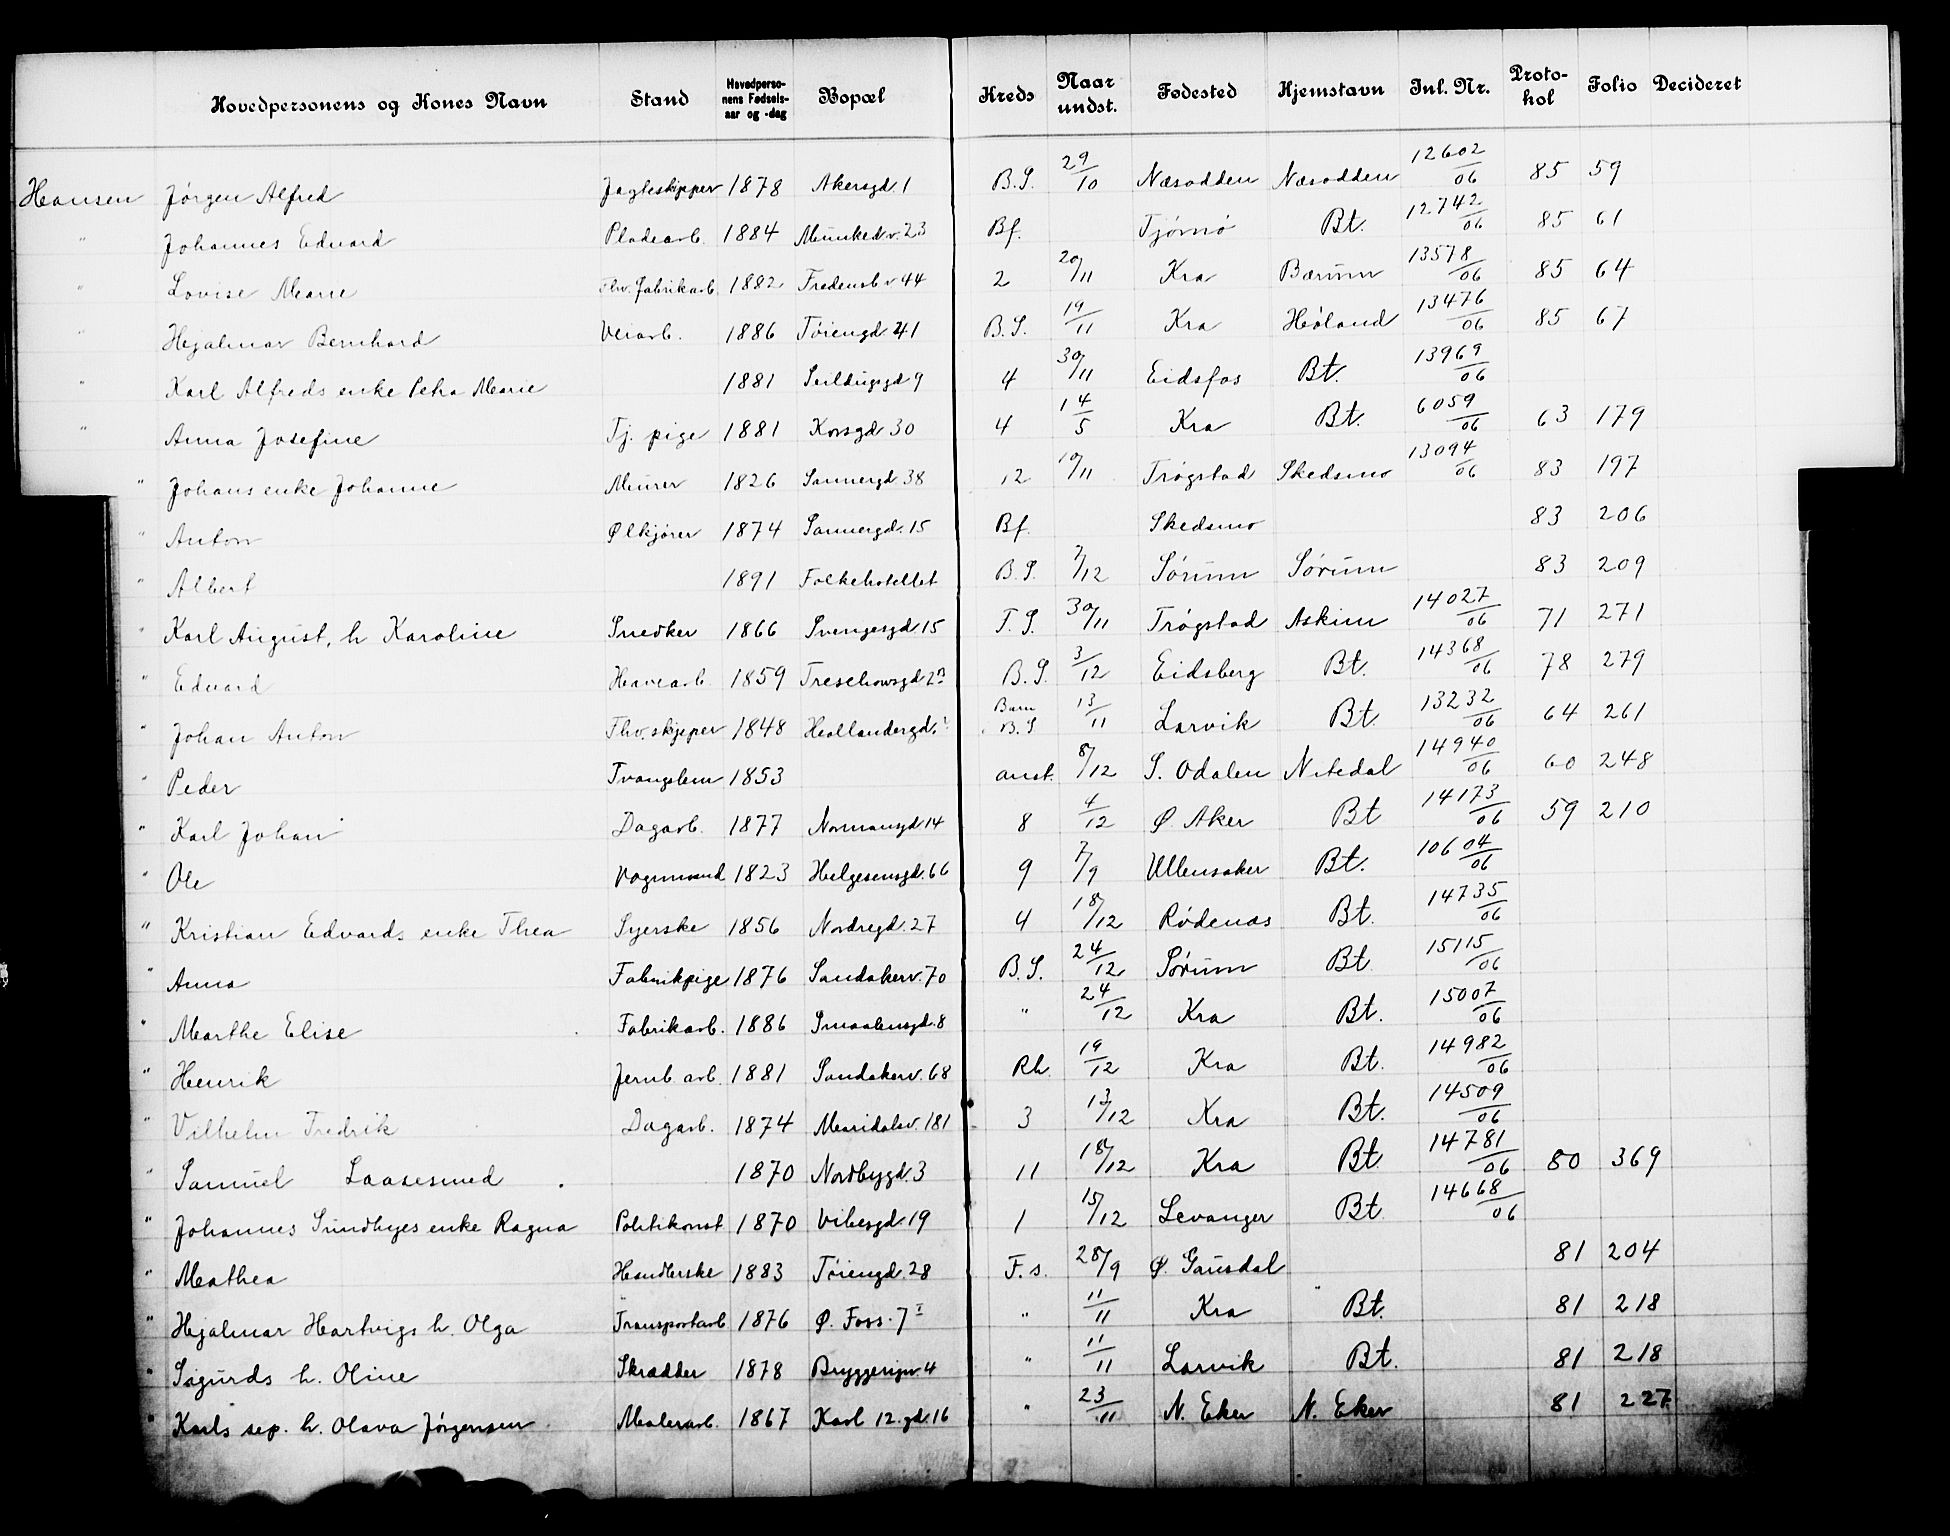 Hovedpersonens og Kones Navn Stand Hovedpersonens Fødselsaar og -dag Bopæl Kreds Naar undst. Fødested Hjemstavn Inl. Nr. Protokol Folio Decideret
Hansen Jørgen Alfred Jagteskipper 1878 Akersgd 1 B.S. 29/10 Næsodden Næsodden 12602/06 85 59
" Johannes Edvard Pladearb. 1884 Munkedv. 23 Bf. Tjømø Bt. 12742/06 85 61
" Lovise Marie Fhv. fabrikarb. 1882 Fredensb v 44 2 20/11 Kra Bærum 13578/06 85 64
" Hjalmar Bernhard Veiarb. 1886 Tøiengd 41 B.S. 19/11 Kra Høland 13476/06 85 67
" Karl Alfreds enke Petra Marie 1881 Seildugsgd 9 4 30/11 Eidsfos Bt. 13969/06
" Anna Josefine Tj. pige 1881 Korsgd 30 4 14/5 Kra Bt. 6059/06 63 179
" Johans enke Johanne Murer 1826 Sannergd 38 12 10/11 Trøgstad Skedsmo 13094/06 83 197
" Anton Ølkjører 1874 Sannergd. 15 Bf. Skedsmo 83 206
" Albert 1891 Folkehotellet B.S. 7/12 Sørum Sørum 83 209
" Karl August, h Karoline Snedker 1866 Svengesgd 15 F.S. 30/11 Trøgstad Askim 14027/06 71 271
" Edvard Havearb. 1859 Treschowsgd 2 B.S. 3/12 Eidsberg Bt. 14368/06 78 279
" Johan Anton Fhv. skipper 1848 Hollendergd. Barn B.S 13/11 Larvik Bt. 13232/06 64 261
" Peder Tvangslem 1853 anst. 8/12 S. Odalen Nitedal 14940/06 60 248
" Karl Johan Dagarb. 1877 Normansgd 14 8 4/12 Ø. Aker Bt 14173/06 59 210
" Ole Vognmand 1823 Helgesensgd. 66 9 7/9 Ullensaker Bt. 10604/06
" Kristian Edvards enke Thea Syerske 1856 Nordregd. 27 4 18/12 Rødenæs Bt. 14735/06
" Anna Fabrikpige 1876 Sandakerv. 70 B.S. 24/12 Sørum Bt. 15115/06
" Marthe Elise Fabrikarb. 1886 Smaalensgd. 8 " 24/12 Kra Bt. 15007/06
" Henrik Jernb. arb. 1881 Sandakerv. 68 Rh. 19/12 Kra Bt. 14982/06
" Vilhelm Fredrik Dagarb. 1874 Maridalsv. 181 3 13/12 Kra Bt. 14509/06
" Samuel Laasesmed 1870 Nordbygd. 3 11 18/12 Kra Bt. 14781/06 80 369
" Johannes Sundbyes enke Ragna Politikonst 1870 Vibesgd. 19 1 15/12 Levanger Bt 14668/06
" Mathea Handlerske 1883 Tøiengd. 28 F.s. 28/9 Ø. Gausdal 81 204
" Hjalmar Hartvigs h. Olga Transportarb 1876 Ø. Foss. 7 I " 11/11 Kra " Bt. 81 218
" Sigurds h. Oline Skrædder 1878 Bryggerigv. 4 " 11/11 Larvik Bt. 81 218
" Karls sep. h. Olava Jørgensen Malerarb. 1867 Karl 12. gd. 16 " 23/11 N. Eker N. Eker 81 227